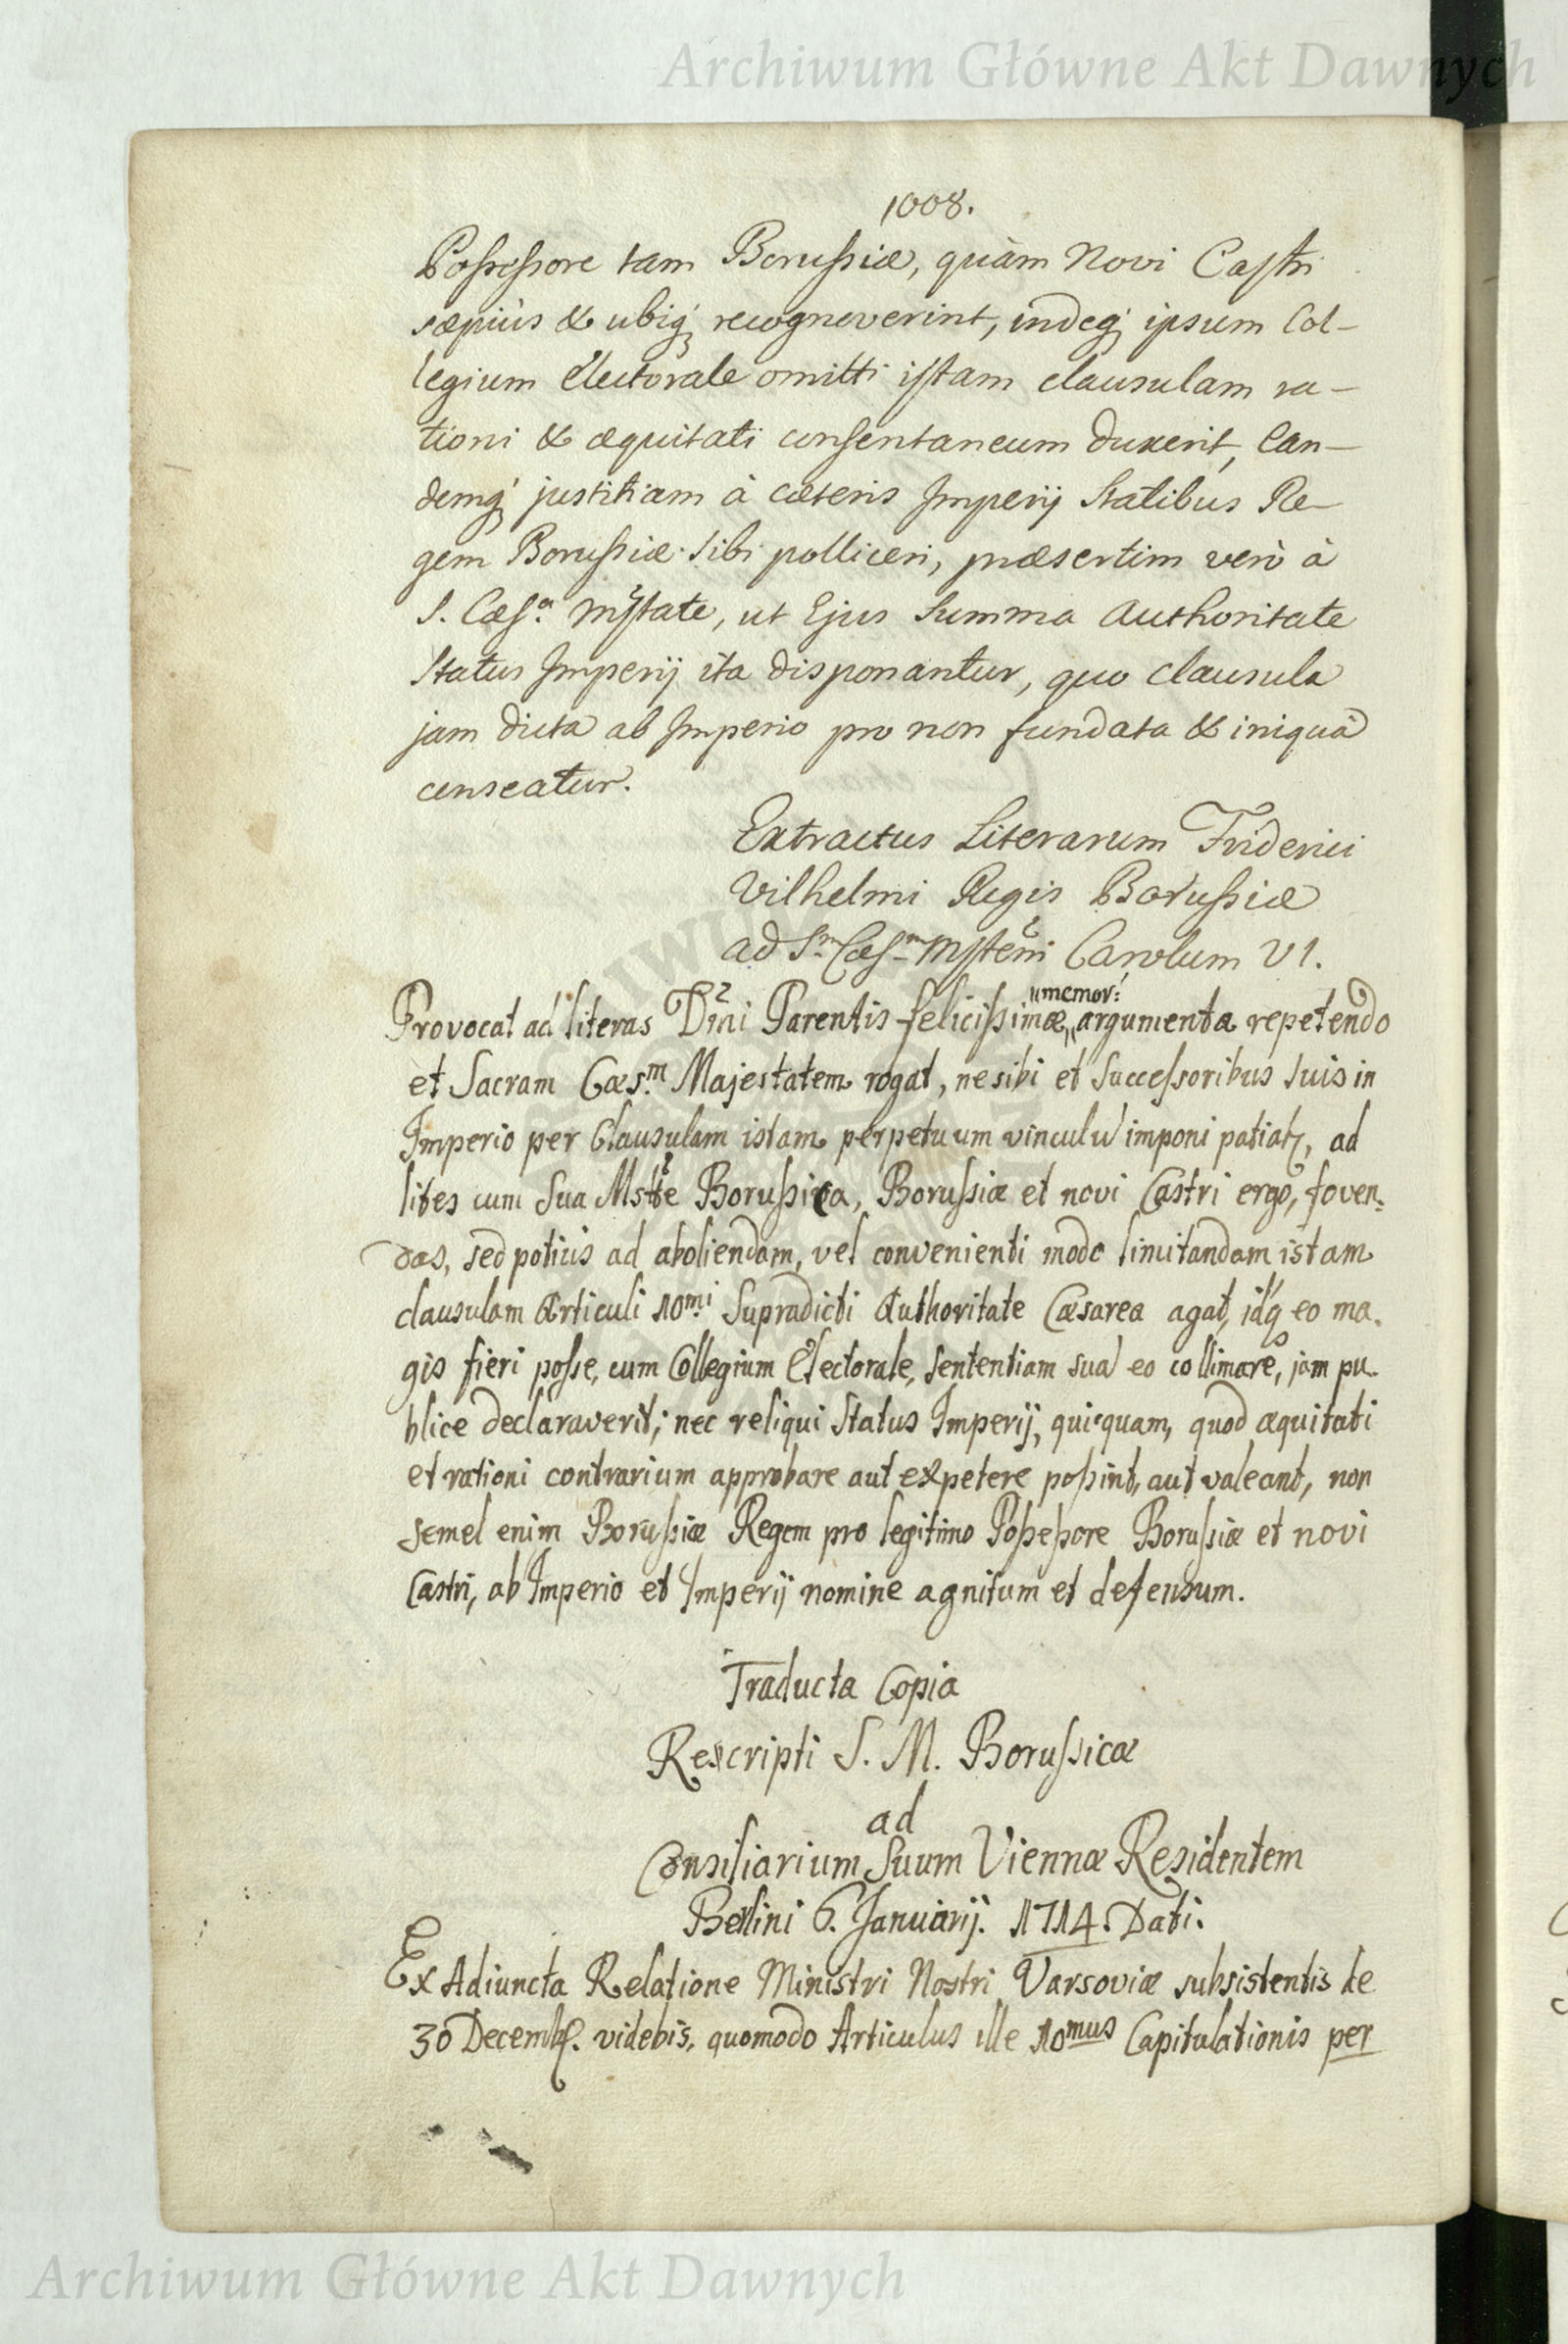 Archiwum Główne Akt Dawnych
1008.
Poſseſsore tam Boruſsiæ, quàm Novi Caſtri
sæpiùs & ubiq; recognoverint, indeq; ipsum Col-
legium Electorale omitti iſtam clausulam ra-
tioni & æquitati conſentaneum duxerit, Ean-
demq; justitiam à cæteris Imperij Statibus Re-
gem Boruſsiæ sibi polliceri, præsertim verò à
S. Cæſ.ᵃ Mſtate, ut Ejus Summa Authoritate
Status Imperij ita disponantur, quo clausula
jam dicta ab Imperio pro non fundata & iniquâ
censeatur.
Extractus Literarum Friderici
Vilhelmi Regis Boruſsiæ
ad S.ᵐ Cæſ.ᵐ Mſtem Carolum VI.
Provocat ad literas Dni Parentis feliciſsimæ memor: argumenta repetendo
et Sacram Cæs.ᵐ Majestatem rogat, ne sibi et Succeſsoribus suis in
Imperio per Clausulam istam perpetuum vinculū imponi patiatꝛ, ad
lites cum Sua Mstte Boruſsica, Boruſsiæ et novi Castri ergo, foven-
das, sed potius ad aboliendam, vel convenienti modo limitandam istam
clausulam Articuli 10mi Supradicti Authoritate Cæsarea agat, idq; eo ma-
gis fieri poſse, cum Collegium Electorale, sententiam suā eo collimare, jam pu-
blice declaraverit; nec reliqui Status Imperij, quicquam, quod æquitati
et rationi contrarium approbare aut expetere poſsint, aut valeant, non
semel enim Boruſsiæ Regem pro legitimo Poſseſsore Boruſsiæ et novi
Castri, ab Imperio et Imperij nomine agnitum et defensum.
Traducta Copia
Rescripti S. M. Boruſsicæ
ad
Consiliarium Suum Viennæ Residentem
Berlini 6. Januarij. 1714. Dati.
Ex Adiuncta Relatione Ministri Nostri Varsoviæ subsistentis de
30 Decembr. videbis, quomodo Articulus ille 10mus Capitulationis per
Archiwum Główne Akt Dawnych